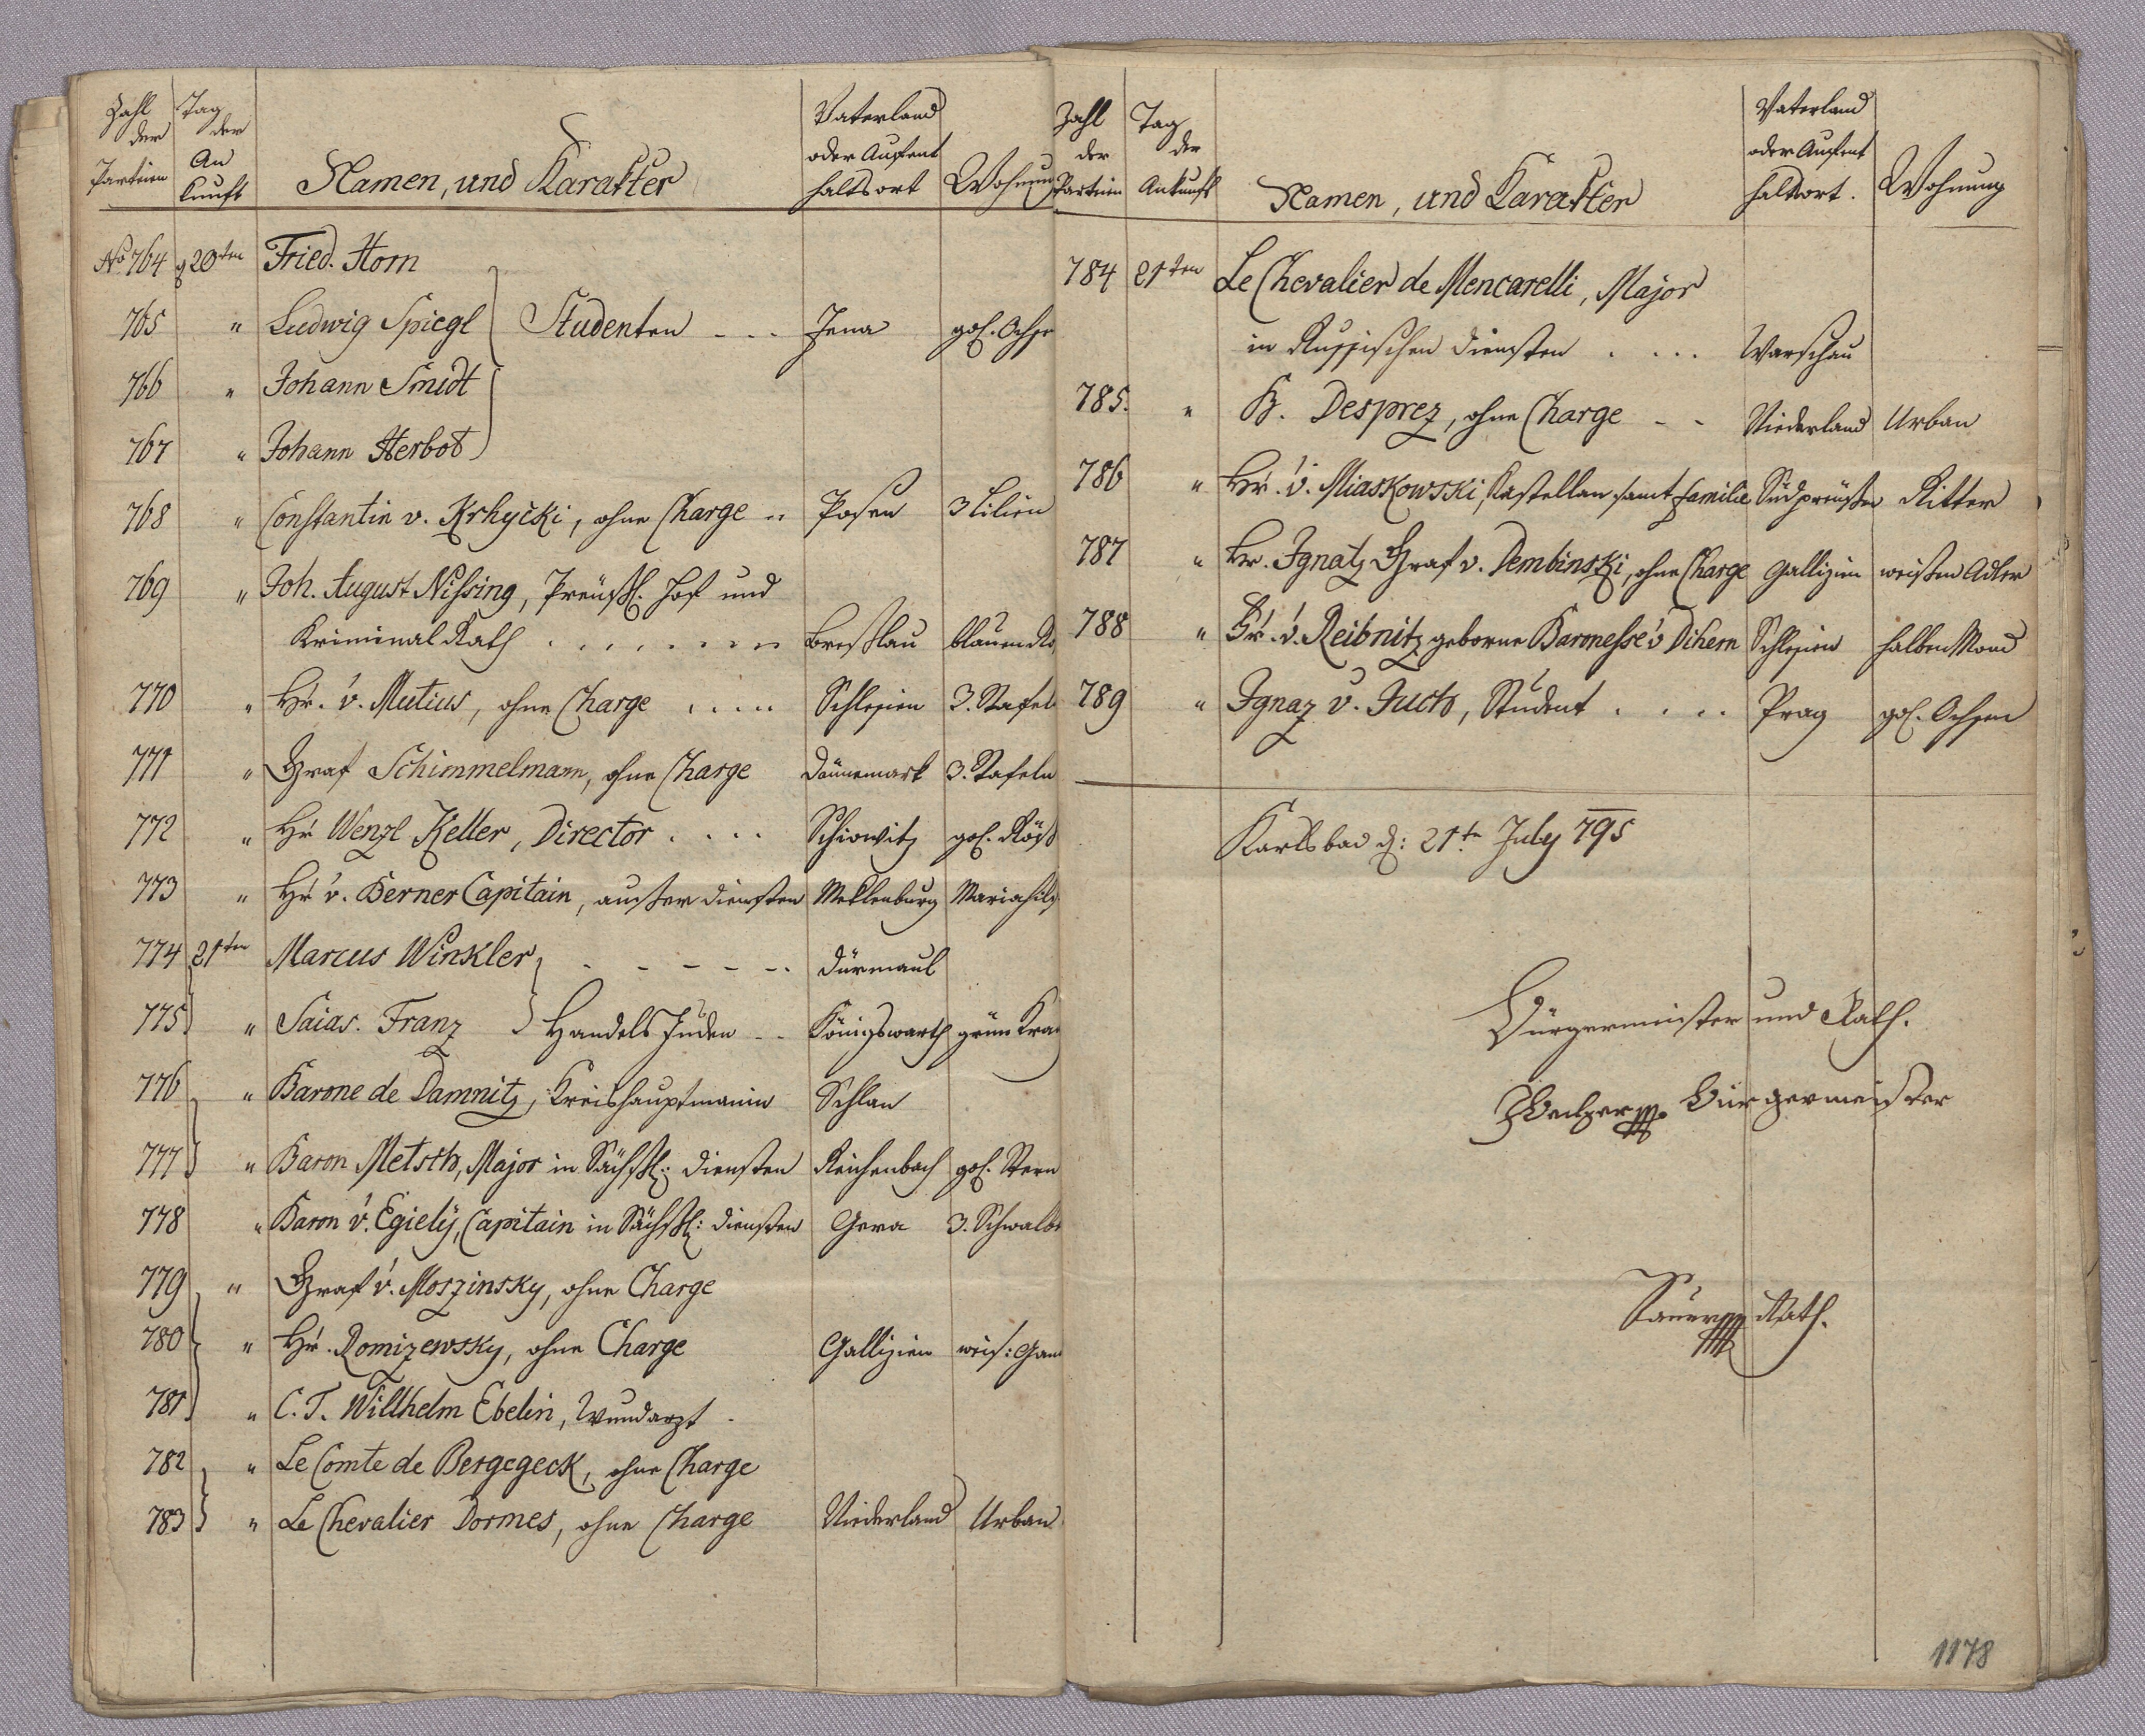 Zahl der Parteien
Tag der Ankunft
Namen, und Karakter
Vaterland oder Aufenthaltsort
Wohnun
No 764 d 20ten Fried. Horn
765 " Ludwig Spiegl Studenten Jena gol. Ochse
766 " Johann Smidt
767 " Johann Herbot
768 " Constantin v. Krhycki, ohne Charge Posen 3 Lilien
769 " Joh. August Nissing, Preußl. Hof und
Kriminal Rath Breßlau blauen
770 " Hr. v. Mutius, ohne Charge Schlesien 3. Stafel
771 " Graf Schimmelmann, ohne Charge Dännemark 3. Stafeln
772 " Hr Wenzl Keller, Director Schiowitz gol. Röß
773 " Hr v. Berner Capitain, ausser Diensten Meklenburg Mariahilf
774 21ten Marcus Winkler Dürmaul
775 " Saias. Franz Handels Juden Königswarth grün
776 " Barone de Damnitz, Kreishauptmanin Schlan
777 " Baron Metsch, Major in Sächßl: Diensten Reichenbach gol. Stern
778 " Baron v. Egiely, Capitain in Sächßl: Diensten Gera 3. Schwalb
779 " Graf v. Moszinsky, ohne Charge
780 " Hr. Romizewsky, ohne Charge Gallizien weis: Gans
781 " C. T. Willhelm Ebelin, Wundarzt
782 " Le Comte de Bergegeck, ohne Charge
783 " Le Chevalier Dormes, ohne Charge Niederland Urban
Zahl der Partein
Tag der Ankunft
Namen, und Karakter
Vaterland oder Aufenthaltsort.
Wohnung
784 21ten Le Chevalier de Mencarelli, Major
in Russischen Diensten Warschau
785. " H. Desprez, ohne Charge Niederland Urban
786 " Hr. v. Miaskowski, Kastellan samt Familie Südpreußen Ritter
787 " Hr. Ignatz Graf v. Dembinski, ohne Charge Gallizien weißen Adler
788 " Fr. v. Reibnitz geborne Baronesse v Dihern Schlesien halben Mond
789 " Ignaz v. Juch, Student Prag gol. Ochsen
Karlsbad d: 21te July 795
Bürgermeister und Rath.
Bürgermeister
Rath.
1178